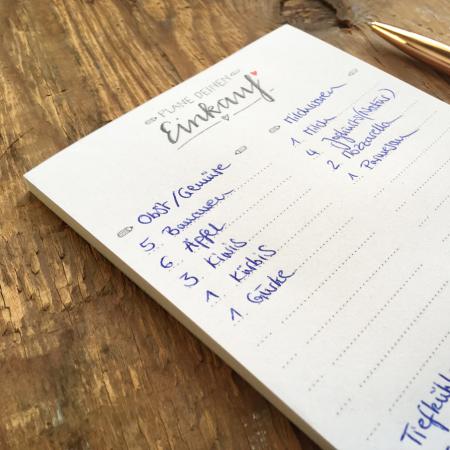 PLANE DEINEN
Einkauf
Obst/Gemüse
5 Bananen
6 Äpfel
3 Kiwis
1 Kürbis
1 Gurke
Milchwaren
1 Milch
4 Joghurts (Natur)
2 Mozzarella
1 Parmesan